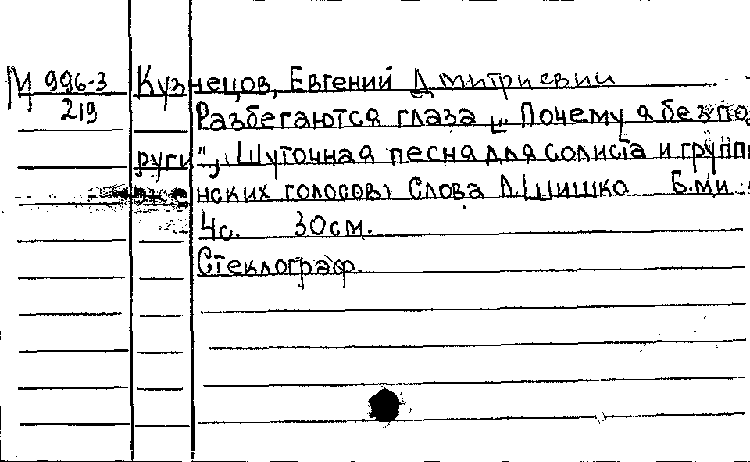 М 996-3 Кузнецов, Евгений Дмитриевич
219
Разбегаются глаза „Почему я без под
руги", Шуточная песня для солиста и групп
женских голосов) Слова А. Шишко Б.м.и
4с. 30см.
Стеклограф.